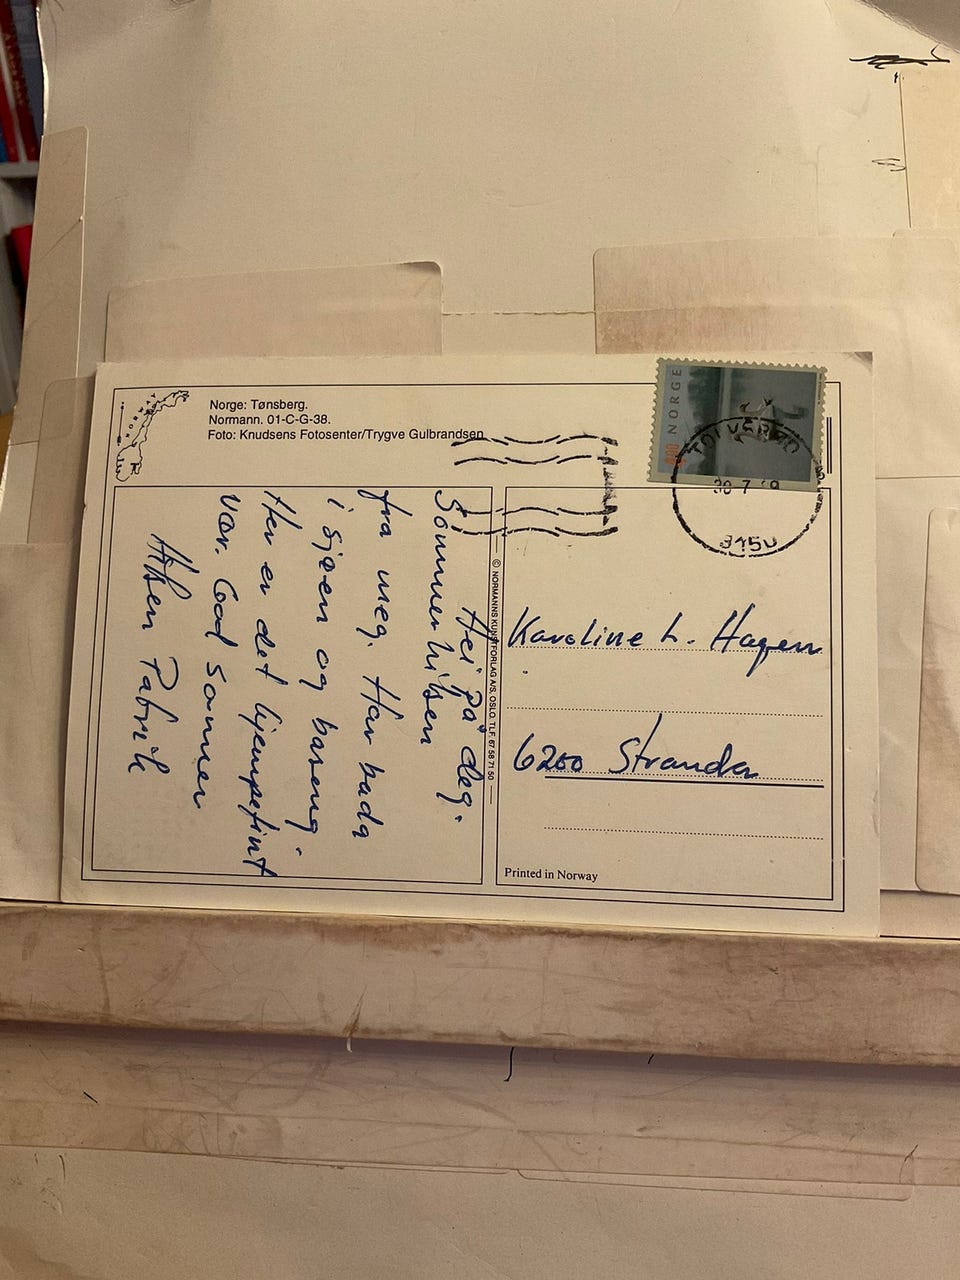 Norge: Tønsberg.
Normann. 01-C-G-38.
Foto: Knudsens Fotosenter/Trygve Gulbrandsen
NORWAY
NORGE
TOLVSRØD
3150
Hei på deg.
Sommerhilsen
fra meg. Har bada
i sjøen og basseng.
Her er det kjempefint
vær. God sommer
Hilsen Patrik
© NORMANNS KUNSTFORLAG A/S, OSLO. TLF. 67 58 71 50
Karoline L. Hagen
6200 Stranda
Printed in Norway